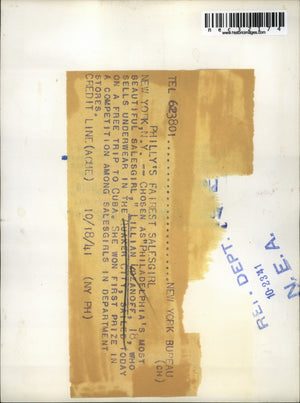 TEL 623801..........NEW YORK BUREAU
(OH)
PHILLY'S FAIREST SALESGIRL
NEW YORK, N.Y. -- CHOSEN AS PHILADELPHIA'S MOST
BEAUTIFUL SALESGIRL, LILLIAN 18, WHO
SELLS UNDERWEAR IN THE QUAKER CITY, SAILED TODAY
ON A FREE TRIP TO CUBA. SHE WON FIRST PRIZE IN
A COMPETITION AMONG SALESGIRLS IN DEPARTMENT
STORES.
CREDIT LINE (ACME) 10/18/41 (NY PH)
REF. DEPT.
10-23-41
N. E. A.